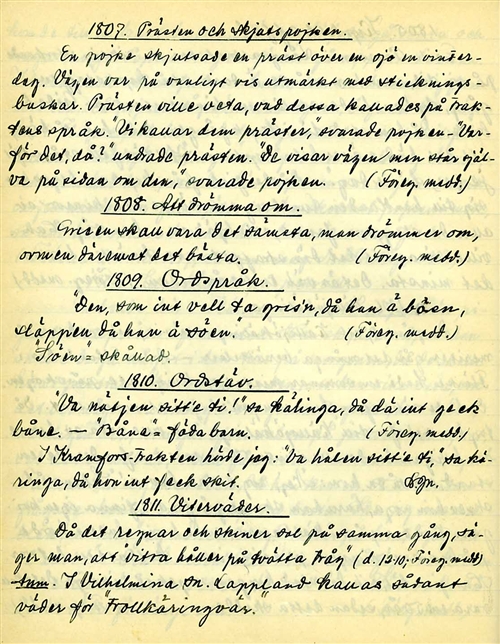 1807. Prästen och skjutspojken.
En pojke skjutsade en präst över en sjö en vinter-
dag. Vägen var på vanligt vis utmärkt med sticknings-
buskar. Prästen ville veta, vad dessa kallades på trak-
tens språk. "Vi kallar dem präster," svarade pojken. - "Var-
för det, då?" undrade prästen. "De visar vägen men står själ-
va på sidan om den," svarade pojken. (Föreg. medd.)
1808. Att drömma om.
Grisen skall vara det sämsta, man drömmer om,
ormen däremot det bästa. (Föreg. medd.)
1809. Ordspråk.
"Den, som int vell ta gris'n, då han ä båen,
släpp'en då han ä söen. (Föreg. medd.)
"Söen" = skållad.
1810. Ordstäv.
"Va nätjen sitt'e ti!" sa kälinga, då dä int geck
båne. - "Båna" = föda barn. (Föreg. medd.)
I Kramfors-trakten hörde jag: "Va hålen sitt'e ti," sa kä-
ringa, då hon int feck skit. Sgn.
1811. Vitterväder.
Då det regnar och skiner sol på samma gång, sä-
ger man, att vitra håller på tvätta tråg" (d. 12-10, Föreg. medd)
I Vilhelmina sn. Lappland kallas sådant
väder för "Trollkäringvär."